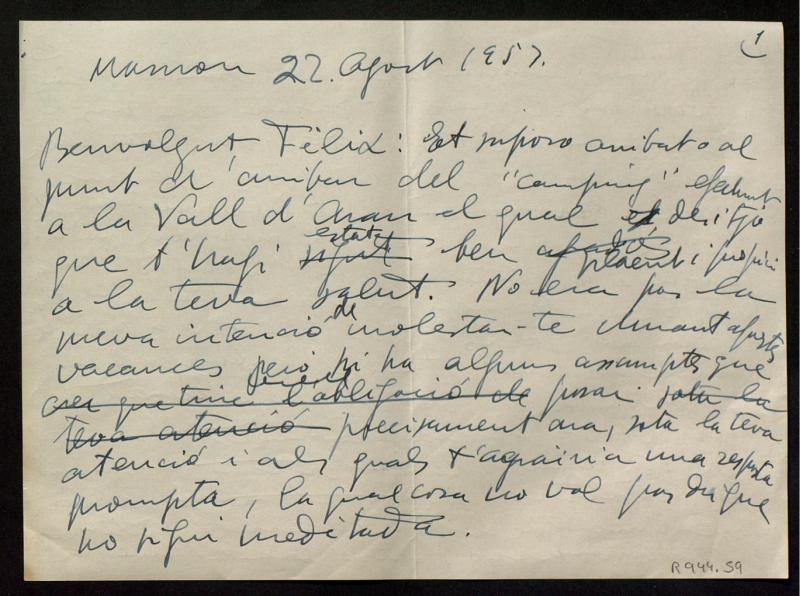 1
Masnou 22. Agost 1957.
Benvolgut Fèlix: Et suposo arribat o al
punt d'arribar del "camping" efectuat
a la Vall d'Aran el qual et desitjo
que t'hagi sigut estat ben plaent i propici
a la teva salut. No era pas la
meva intenció de molestar-te durant aquestes
vacances però hi ha alguns assumptes que
que tinc l'obligació de posar sota la
teva atenció precisament ara, sota la teva
atenció i als quals t'agrairia una resposta
prompta, la qual cosa no vol pas dir que
no sigui meditada.
R 944.59